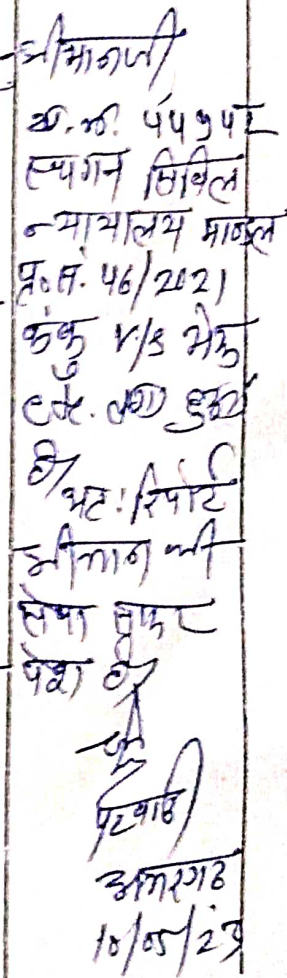 श्रीमानजी
ख.नं. 5515 पर
स्थगन सिविल
न्यायालय माण्डल
प्र.सं. 46/2021
कंकु v/s भेरू
लगा हुआ
है। अतः रिपोर्ट
श्रीमान की
सेवा में
पेश है।
पटवारी
अमरगढ
10/05/23